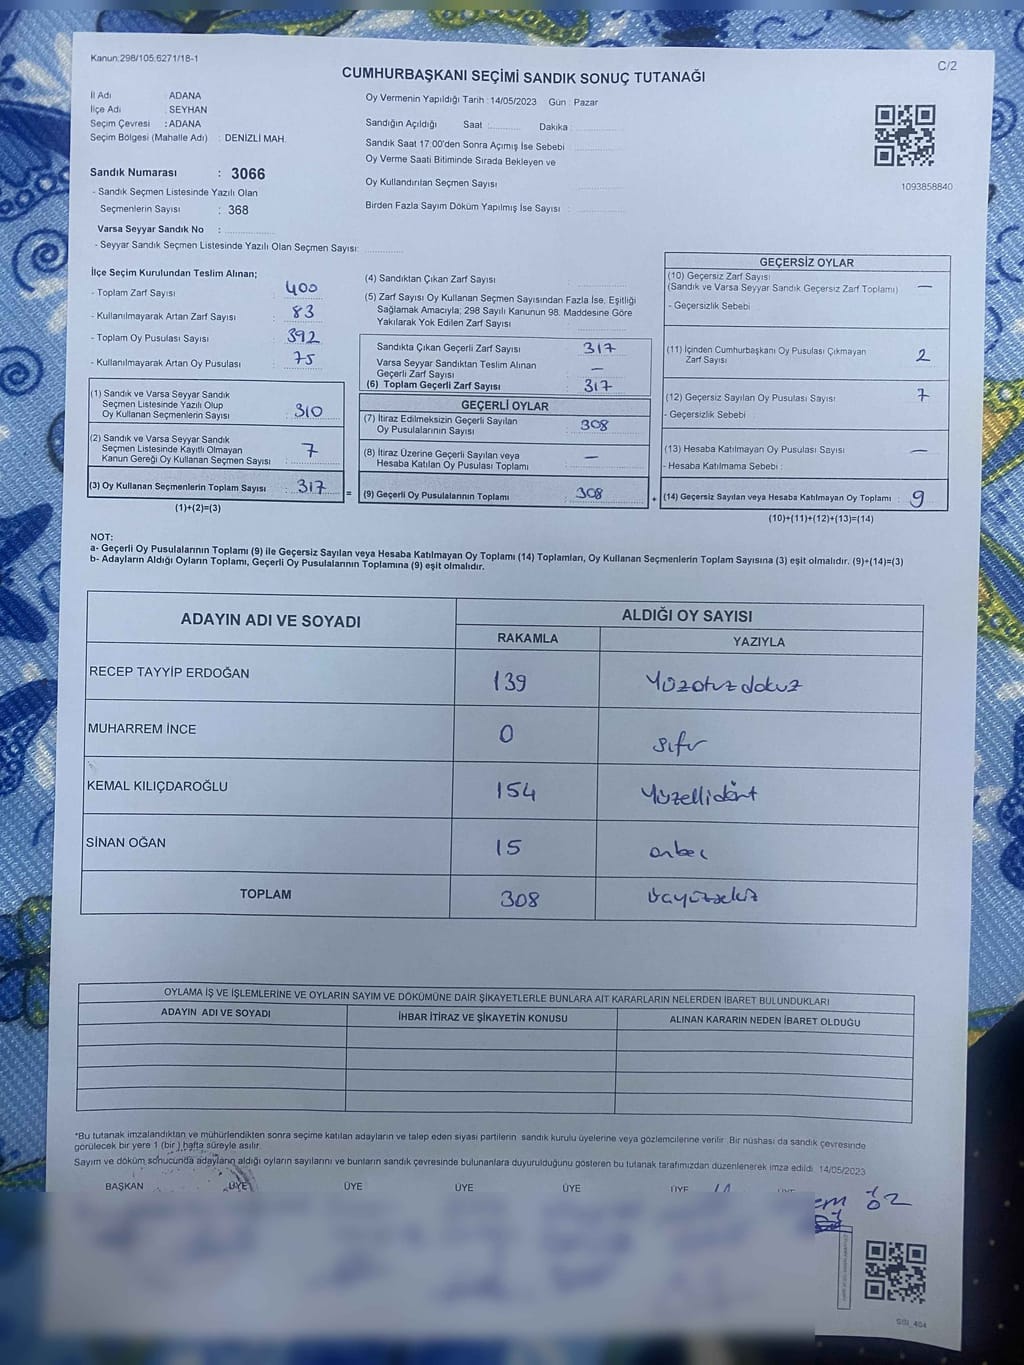 Kanun:298/105,6271/18-1
C/2
CUMHURBAŞKANI SEÇİMİ SANDIK SONUÇ TUTANAĞI
İl Adı : ADANA
İlçe Adı : SEYHAN
Seçim Çevresi : ADANA
Seçim Bölgesi (Mahalle Adı) : DENİZLİ MAH.
Oy Vermenin Yapıldığı Tarih : 14/05/2023 Gün : Pazar
Sandığın Açıldığı Saat :.......... Dakika :..........
Sandık Saat 17:00'den Sonra Açımış İse Sebebi :..........
Oy Verme Saati Bitiminde Sırada Bekleyen ve
Oy Kullandırılan Seçmen Sayısı ..........
Birden Fazla Sayım Döküm Yapılmış İse Sayısı : ..........
1093858840
Sandık Numarası : 3066
- Sandık Seçmen Listesinde Yazılı Olan
Seçmenlerin Sayısı : 368
Varsa Seyyar Sandık No : ..........
- Seyyar Sandık Seçmen Listesinde Yazılı Olan Seçmen Sayısı: ..........
İlçe Seçim Kurulundan Teslim Alınan;
- Toplam Zarf Sayısı : 400
- Kullanılmayarak Artan Zarf Sayısı : 83
- Toplam Oy Pusulası Sayısı : 392
- Kullanılmayarak Artan Oy Pusulası : 75
(1) Sandık ve Varsa Seyyar Sandık
Seçmen Listesinde Yazılı Olup
Oy Kullanan Seçmenlerin Sayısı : 310
(2) Sandık ve Varsa Seyyar Sandık
Seçmen Listesinde Kayıtlı Olmayan
Kanun Gereği Oy Kullanan Seçmen Sayısı : 7
(3) Oy Kullanan Seçmenlerin Toplam Sayısı : 317
(1)+(2)=(3)
=
(4) Sandıktan Çıkan Zarf Sayısı : ..........
(5) Zarf Sayısı Oy Kullanan Seçmen Sayısından Fazla İse, Eşitliği
Sağlamak Amacıyla; 298 Sayılı Kanunun 98. Maddesine Göre
Yakılarak Yok Edilen Zarf Sayısı : ..........
Sandıkta Çıkan Geçerli Zarf Sayısı : 317
Varsa Seyyar Sandıktan Teslim Alınan
Geçerli Zarf Sayısı : —
(6) Toplam Geçerli Zarf Sayısı : 317
GEÇERLİ OYLAR
(7) İtiraz Edilmeksizin Geçerli Sayılan
Oy Pusulalarının Sayısı : 308
(8) İtiraz Üzerine Geçerli Sayılan veya
Hesaba Katılan Oy Pusulası Toplamı : —
(9) Geçerli Oy Pusulalarının Toplamı : 308
+
GEÇERSİZ OYLAR
(10) Geçersiz Zarf Sayısı
(Sandık ve Varsa Seyyar Sandık Geçersiz Zarf Toplamı) : —
- Geçersizlik Sebebi :
(11) İçinden Cumhurbaşkanı Oy Pusulası Çıkmayan
Zarf Sayısı : 2
(12) Geçersiz Sayılan Oy Pusulası Sayısı : 7
- Geçersizlik Sebebi :
(13) Hesaba Katılmayan Oy Pusulası Sayısı : —
- Hesaba Katılmama Sebebi :
(14) Geçersiz Sayılan veya Hesaba Katılmayan Oy Toplamı : 9
(10)+(11)+(12)+(13)=(14)
NOT:
a- Geçerli Oy Pusulalarının Toplamı (9) ile Geçersiz Sayılan veya Hesaba Katılmayan Oy Toplamı (14) Toplamları, Oy Kullanan Seçmenlerin Toplam Sayısına (3) eşit olmalıdır. (9)+(14)=(3)
b- Adayların Aldığı Oyların Toplamı, Geçerli Oy Pusulalarının Toplamına (9) eşit olmalıdır.
ADAYIN ADI VE SOYADI
ALDIĞI OY SAYISI
RAKAMLA YAZIYLA
RECEP TAYYİP ERDOĞAN 139 Yüzotuzdokuz
MUHARREM İNCE 0 sıfır
KEMAL KILIÇDAROĞLU 154 Yüzellidört
SİNAN OĞAN 15 onbeş
TOPLAM 308 üçyüzsekiz
OYLAMA İŞ VE İŞLEMLERİNE VE OYLARIN SAYIM VE DÖKÜMÜNE DAİR ŞİKAYETLERLE BUNLARA AİT KARARLARIN NELERDEN İBARET BULUNDUKLARI
ADAYIN ADI VE SOYADI İHBAR İTİRAZ VE ŞİKAYETİN KONUSU ALINAN KARARIN NEDEN İBARET OLDUĞU
*Bu tutanak imzalandıktan ve mühürlendikten sonra seçime katılan adayların ve talep eden siyasi partilerin sandık kurulu üyelerine veya gözlemcilerine verilir. Bir nüshası da sandık çevresinde
görülecek bir yere 1 (bir ) hafta süreyle asılır.
Sayım ve döküm sonucunda adayların aldığı oyların sayılarını ve bunların sandık çevresinde bulunanlara duyurulduğunu gösteren bu tutanak tarafımızdan düzenlenerek imza edildi. 14/05/2023
BAŞKAN ÜYE ÜYE ÜYE ÜYE ÜYE ÜYE